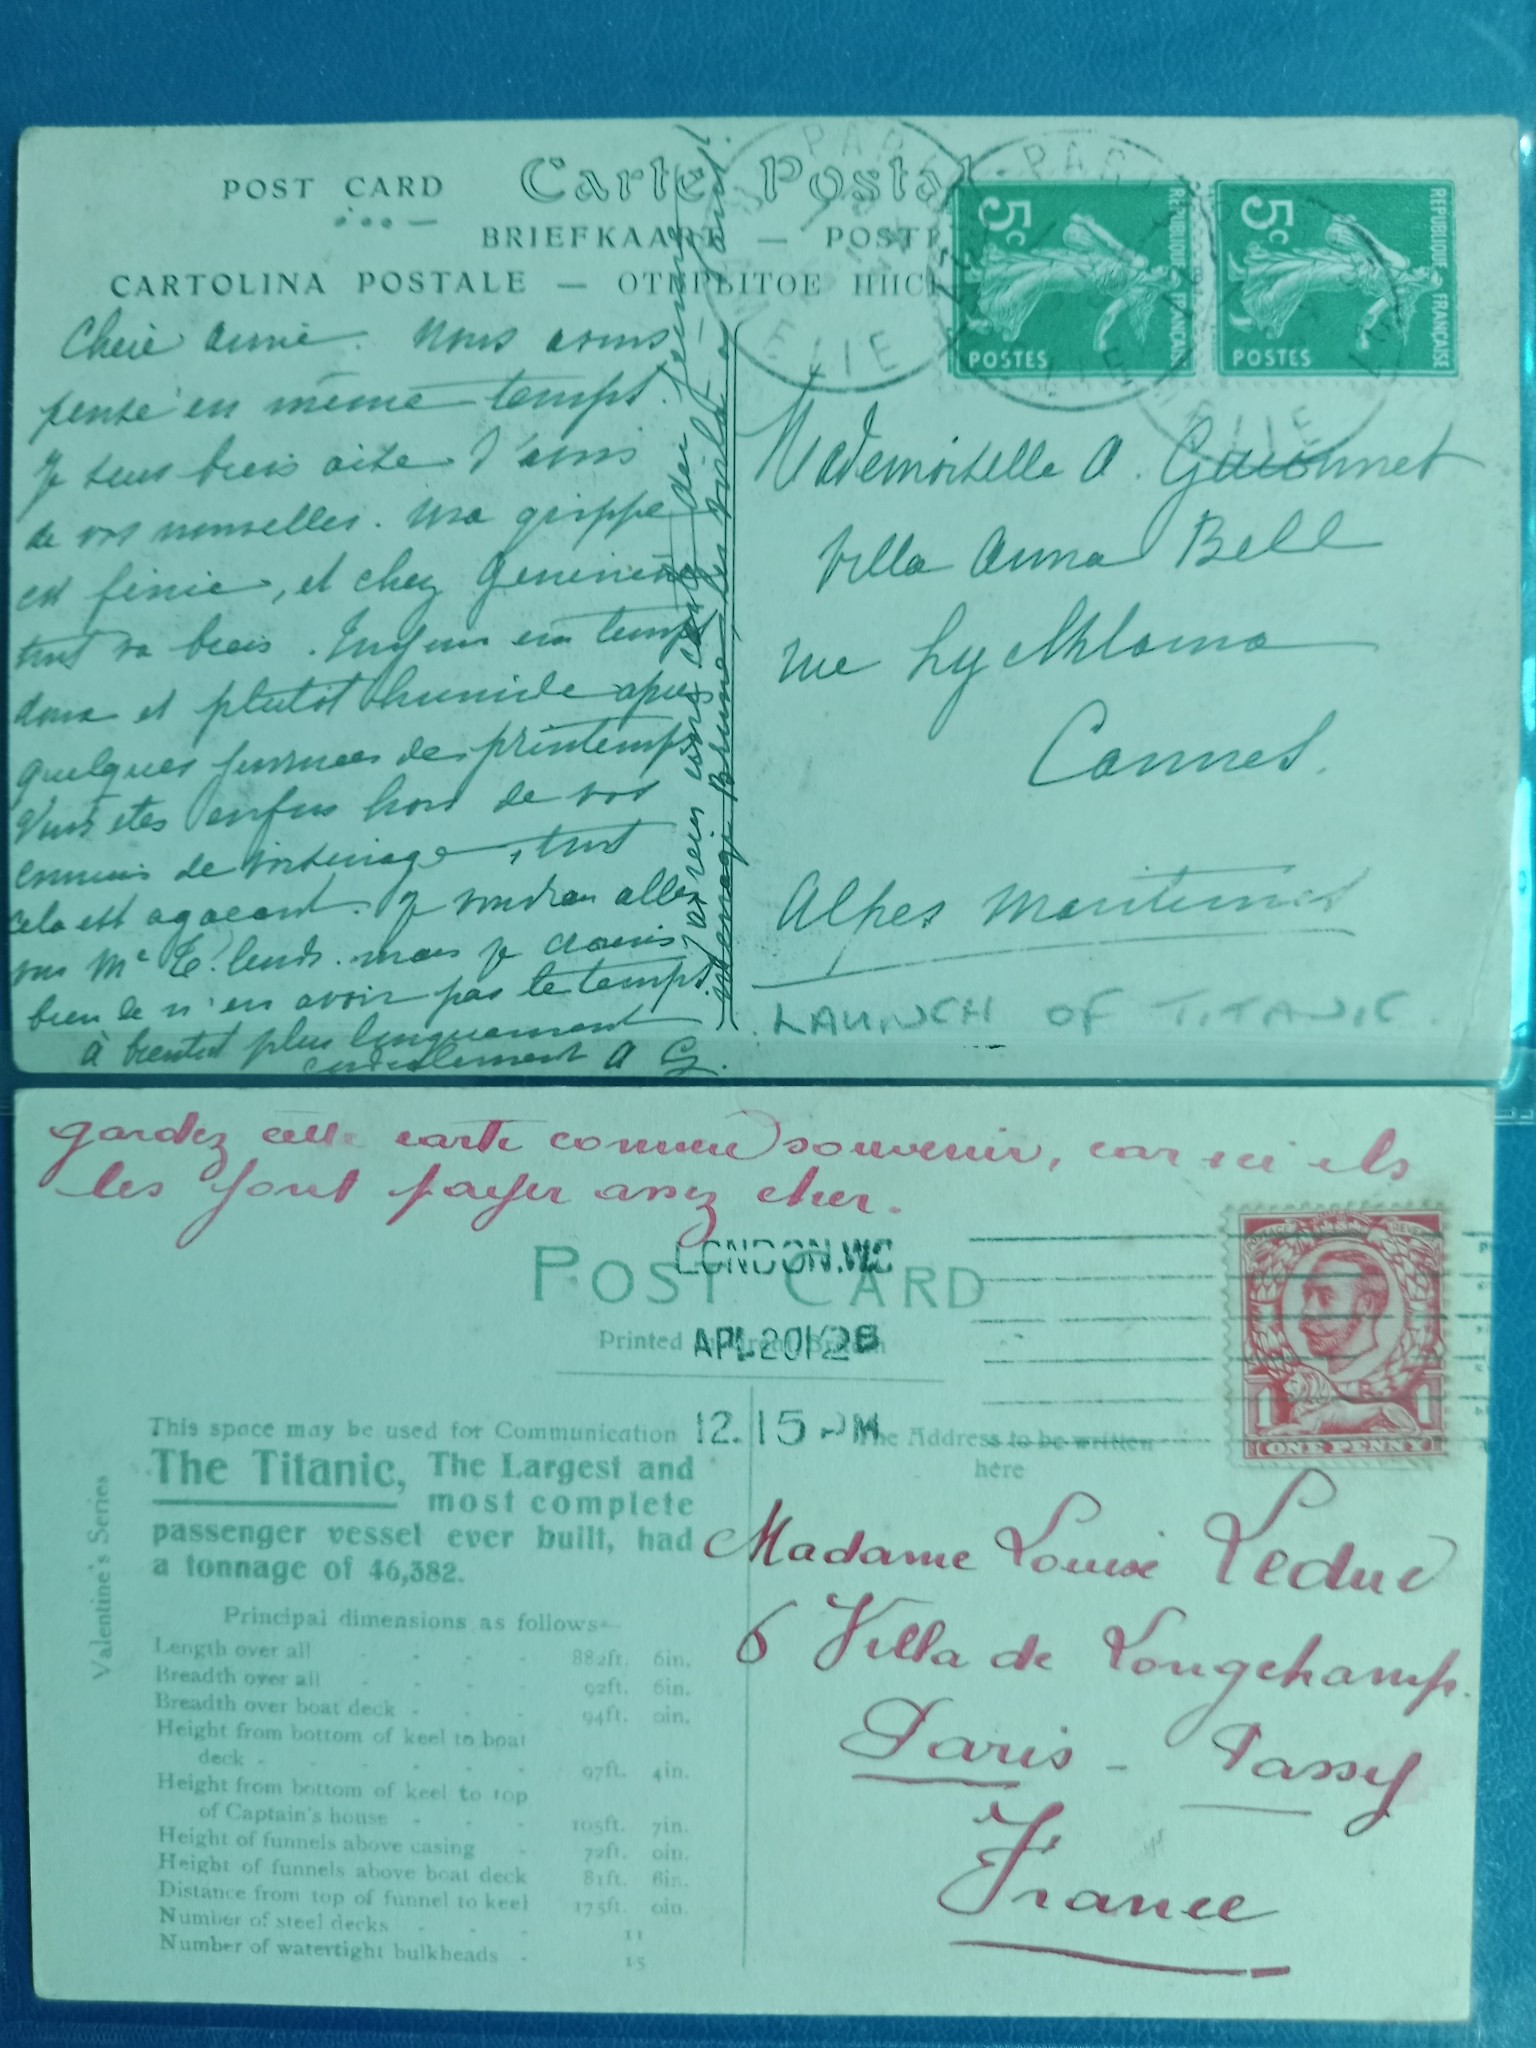 POST CARD
Carte Postal
BRIEFKAART — POST
CARTOLINA POSTALE — ОТКРЫТОЕ ПИС
5c POSTES REPUBLIQUE FRANÇAISE
5c POSTES REPUBLIQUE FRANÇAISE
Chère amie. Nous avons
pensé en même temps.
Je suis bien aise d'avoir
de vos nouvelles. Ma grippe
est finie, et chez Geneviève
tout va bien. Toujours un temps
doux et plutôt humide après
quelques journées de printemps
Vous êtes enfin hors de vos
ennuis de voisinage, tout
cela est agaçant. Je voudrais aller
voir Me
bien de n'en avoir pas le temps.
à bientôt plus longuement
cordialement A G.
Mademoiselle A.
Villa Anna Bell
rue
Cannes.
Alpes Maritimes
LAUNCH OF TITANIC.
gardez cette carte comme souvenir, car ici ils
les font payer assez cher.
LONDON.W.C
POST CARD
APL 20 12
Printed in Great Britain
12.15 PM
ONE PENNY
This space may be used for Communication
The Address to be written
here
The Titanic, The Largest and
most complete
passenger vessel ever built, had
a tonnage of 46,382.
Principal dimensions as follows—
Length over all - - - - 882ft. 6in.
Breadth over all - - - - 92ft. 6in.
Breadth over boat deck - - - 94ft. 0in.
Height from bottom of keel to boat
deck - - - - - - 97ft. 4in.
Height from bottom of keel to top
of Captain's house - - - 105ft. 7in.
Height of funnels above casing - 72ft. 0in.
Height of funnels above boat deck 81ft. 6in.
Distance from top of funnel to keel 175ft. 0in.
Number of steel decks - - 11
Number of watertight bulkheads - 15
Valentine's Series
Madame Louise Leduc
6 Villa de Longchamp.
Paris - Passy
France